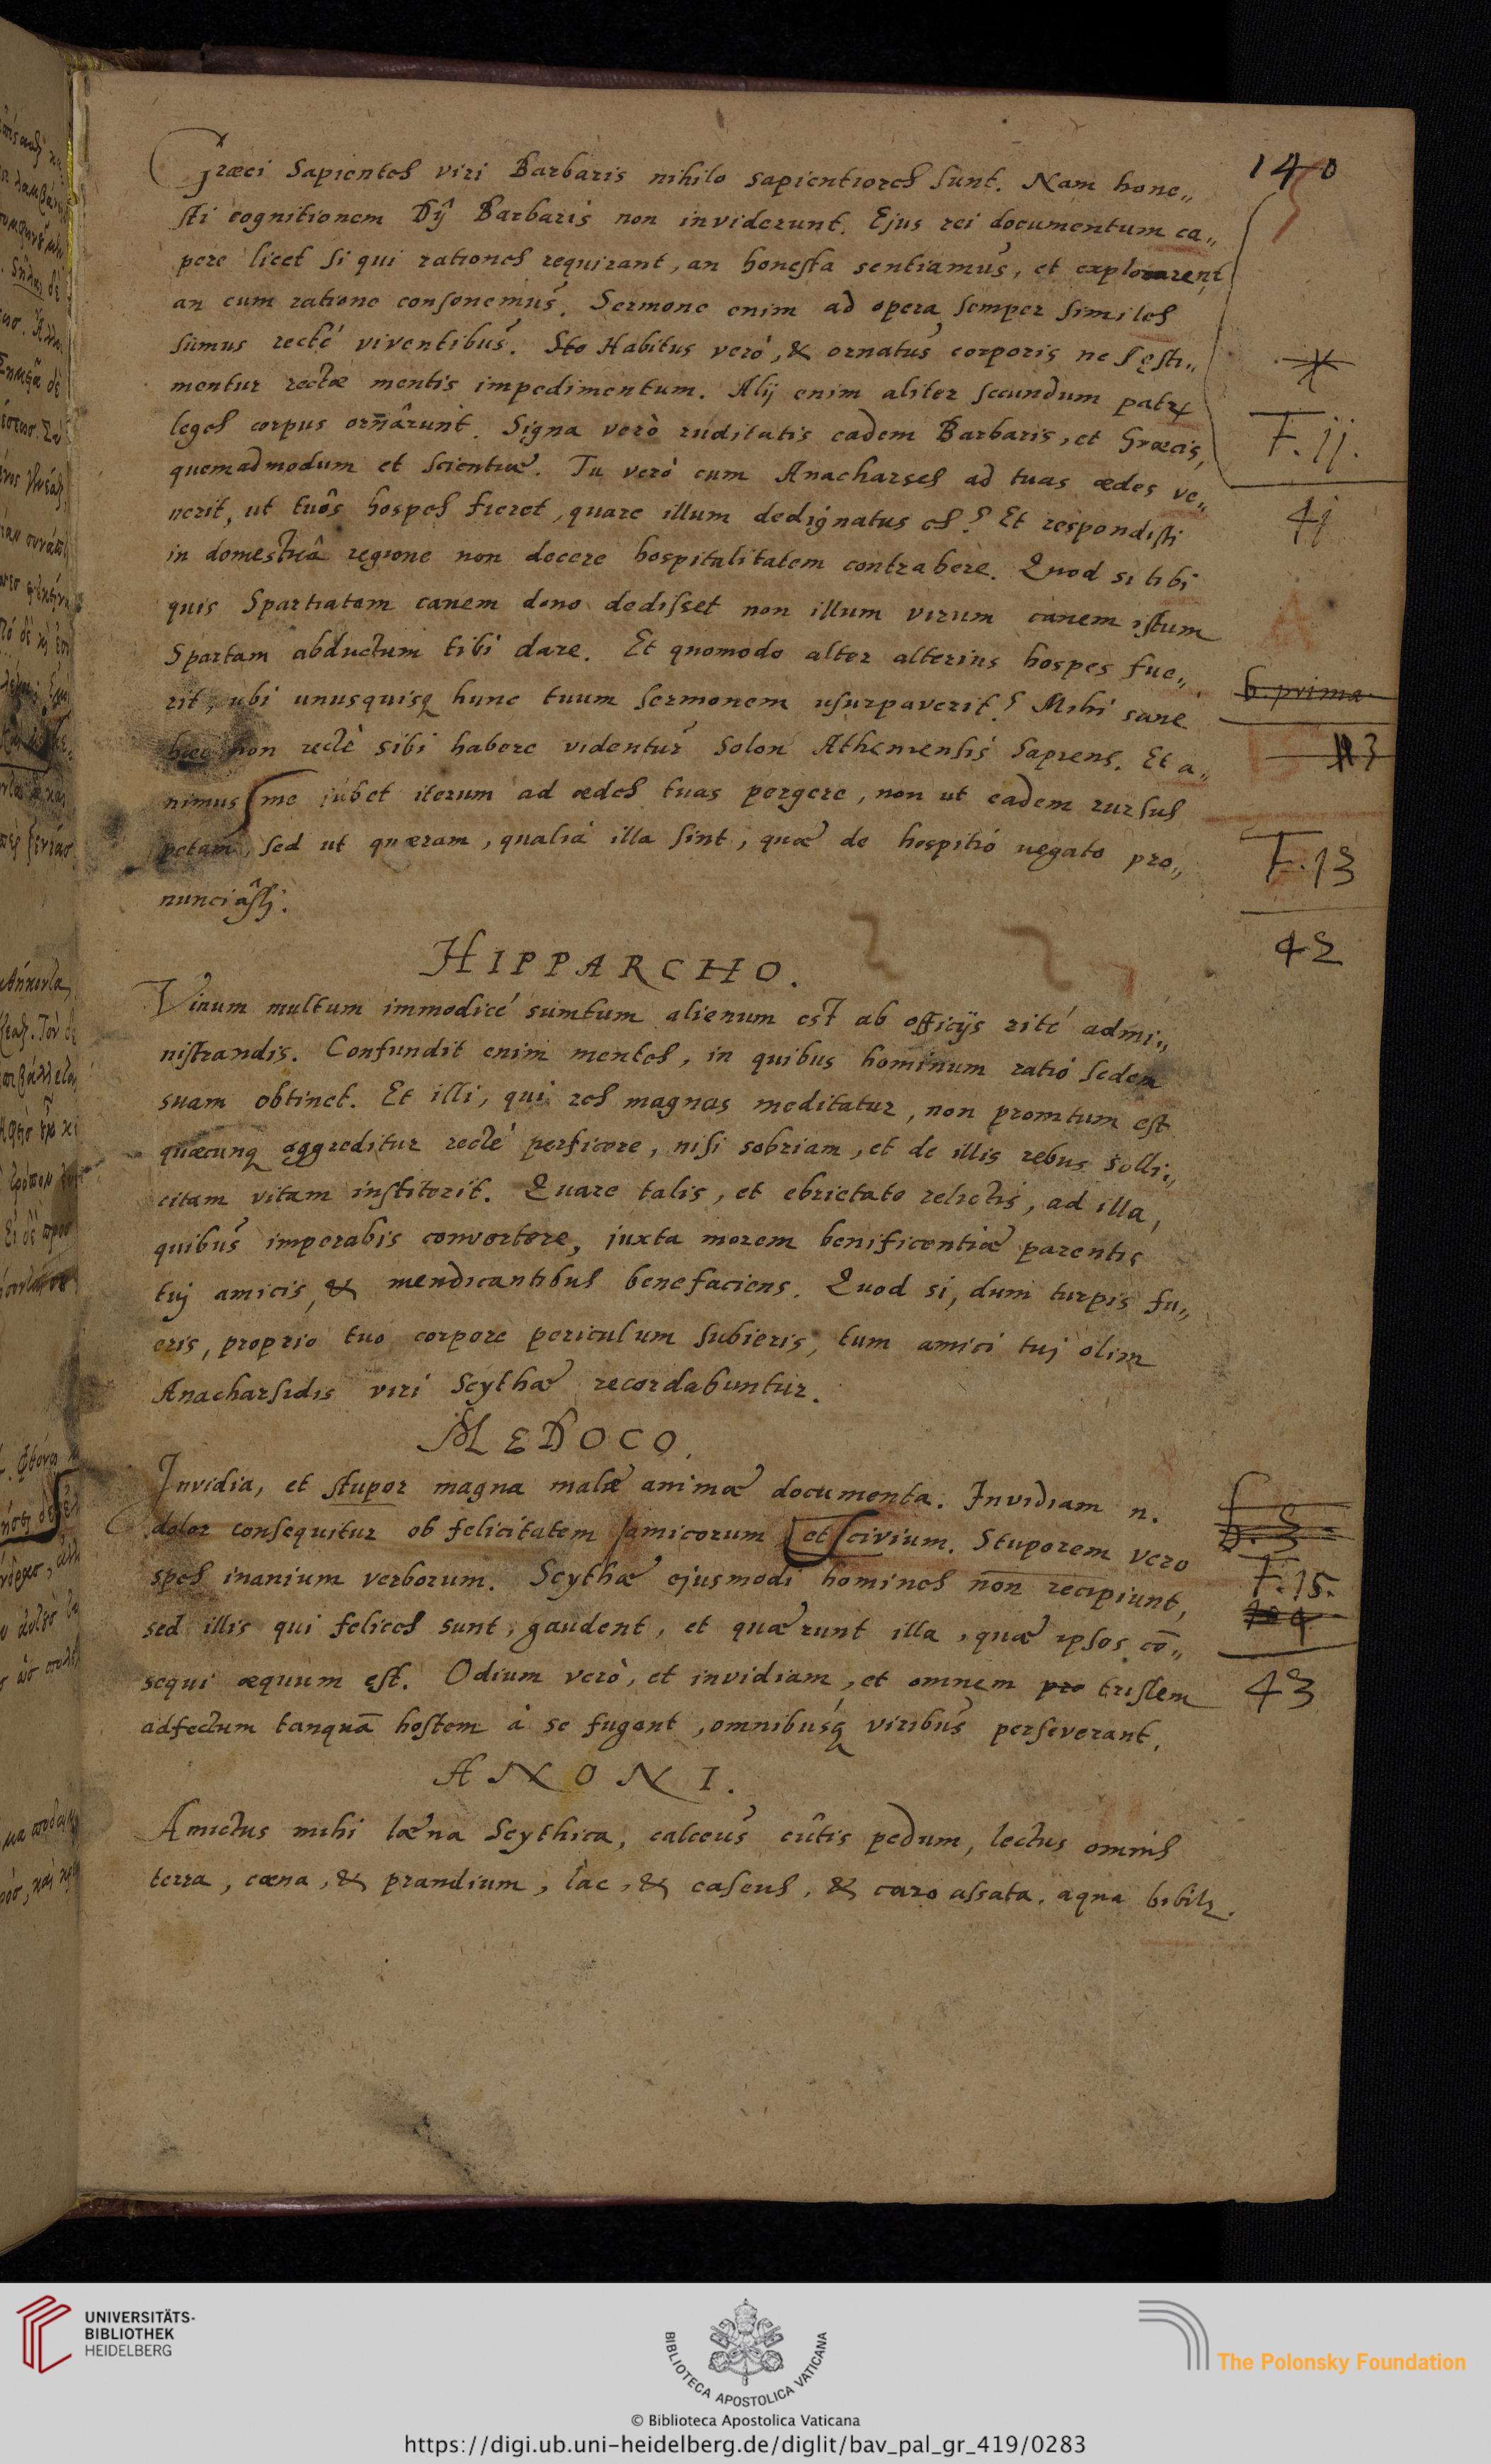 140
Græci Sapientes viri Barbaris nihilo sapientiores sunt. Nam hone„
sti cognitionem Dij Barbaris non inviderunt. Ejus rei documentum ca„
pere licet si qui rationes requirant, an honesta sentiamus, et explorarent
an cum ratione consonemus. Sermone enim ad opera semper similes
sumus recté viventibus. Sto Habitus verò, & ornatus corporis ne sęsti„
mentur rectæ mentis impedimentum. Alij enim aliter secundum
leges corpus ornârunt. Signa verò ruditatis eadem Barbaris, et Græcis,
F. 11.
quemadmodum et scientiæ. Tu verò cum Anacharses ad tuas ædes ve„
nerit, ut tuôs hospes fieret, quare illum dedignatus es? Et respondisti
41
in domesticâ regione non decere hospitalitatem contrahere. Quod si tibi
quis Spartiatam canem dono dedisset non illum virum canem istum
Spartam abductum tibi dare. Et quomodo alter alterius hospes fue„
h. prima
rit, ubi unusquisq hunc tuum sermonem usurpaverit? Mihi sane
hæc non rectè sibi habere videntur Solon Atheniensis Sapiens. Et a„
nimus me jubet iterum ad ædes tuas pergere, non ut eadem rursus
petam, sed ut quæram, qualia illa sint, quæ de hospitió negato pro„
F. 13
nunciâsti.
42
HIPPARCHO.
Vinum multum immodicé sumtum alienum est ab officijs rité admi„
nistrandis. Confundit enim mentes, in quibus hominum ratió sedem
suam obtinet. Et illi, qui res magnas meditatur, non promtum est
quæcunq aggreditur recté perficere, nisi sobriam, et de illis rebus solli„
citam vitam institerit. Quare talis, et ebrietate relictis, ad illa,
quibus imperabis convertere, juxta morem benificentiæ parentis
tuj amicis, & mendicantibus benefaciens. Quod si, dum turpis fu„
eris, proprio tuo corpore periculum subieris, tum amici tuj olim
Anacharsidis viri Scythæ recordabuntur.
MEDOCO.
Invidia, et stupor magna malæ animæ documenta. Invidiam n.
dolor consequitur ob felicitatem amicorum et civium. Stuporem vero
spes inanium verborum. Scythæ ejusmodi homines non recipiunt,
F. 15.
sed illis qui felices sunt, gaudent, et quærunt illa, quæ ipsos cō„
sequi æquum est. Odium verò, et invidiam, et omnem pro tristem
43
adfectum tanquā hostem à se fugant, omnibusq viribus perseverant.
ANONI.
Amictus mihi læna Scythica, calceus cûtis pedum, lectus omnis
terra, cœna, & prandium, lac, & caseus, & caro assata, aqua
UNIVERSITÄTS-
BIBLIOTHEK
HEIDELBERG
BIBLIOTECA APOSTOLICA VATICANA
The Polonsky Foundation
© Biblioteca Apostolica Vaticana
https://digi.ub.uni-heidelberg.de/diglit/bav_pal_gr_419/0283